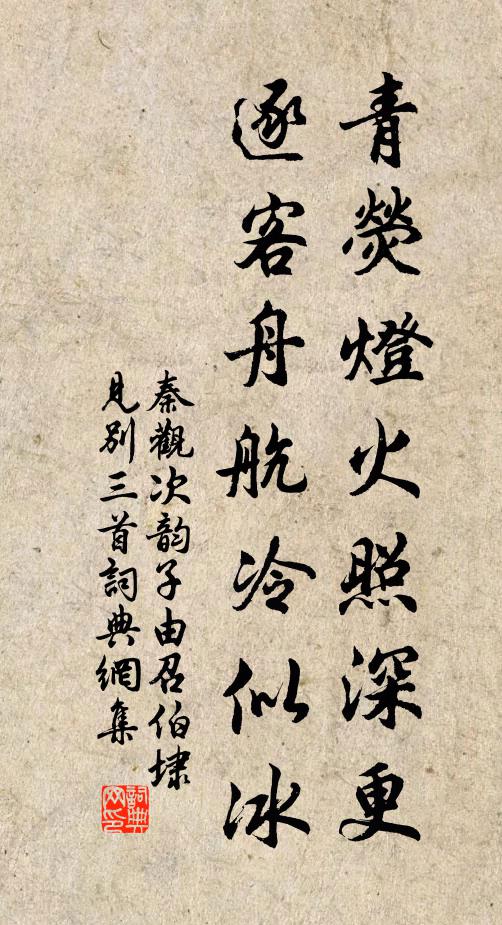 青熒燈火照深更
逐客舟航冷似冰
秦觀次韵子由召伯埭
見別三首詞典網集
詞典网印